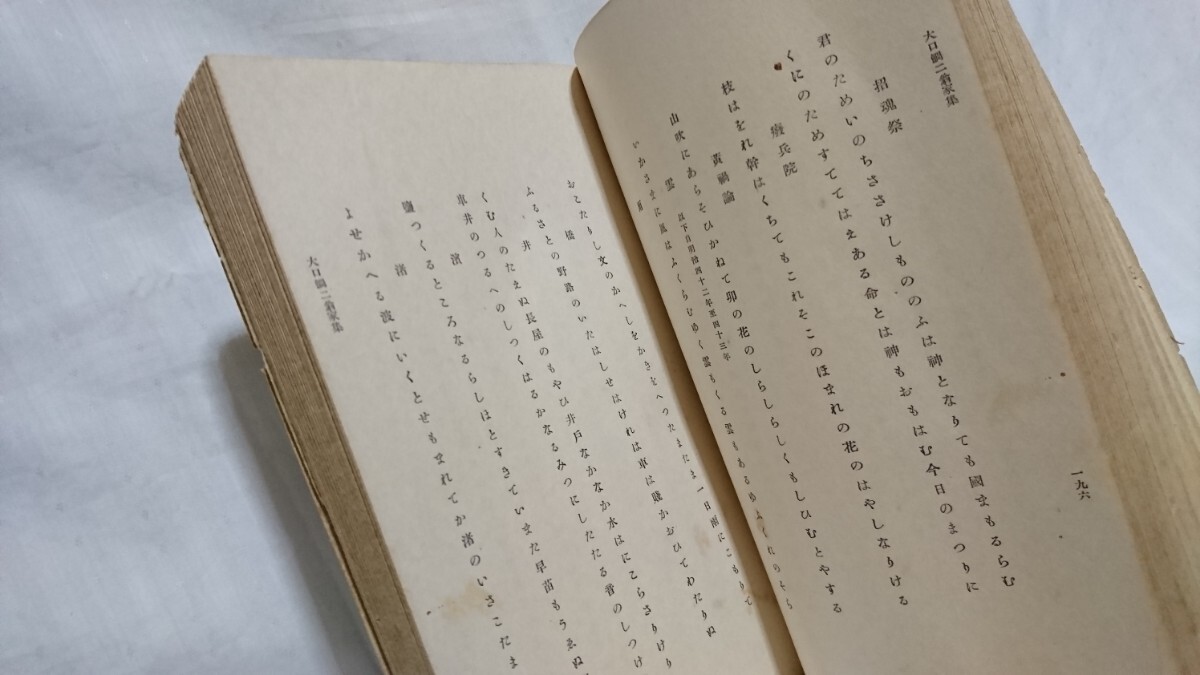 大口鯛二翁家集
一九六
招魂祭
君のためいのちささけしもののふは神となりても國まもるらむ
くにのためすててはまある命とは神もおもはむ今日のまつりに
癈兵院
枝はをれ幹はくちてもこれそこのほまれの花のはやしなりける
黃禍論
山吹にあらそひかねて卯の花のしらしらしくもしひむとやする
雲 以下自明治四十二年至四十三年
いかさまに風はふくらむゆく雲もくる雲もあるゆふくれのそら
雨
おこたりし文のかへしをかきをへつたまたま一日雨にこもりて
橋
ふるさとの野路のいたはしせはけれは車は賤かおひてわたりぬ
井
くむ人のたまぬ長屋のもやひ井戶なかなか水はにこらさりけり
車井のつるへのしつくはるかなるみつにしたたる音のしつけ
濱
鹽つくるところなるらしはとすきていまた早苗もうゑぬ
渚
よせかへる波にいくとせもまれてか渚のいさこたま
大口鯛二翁家集